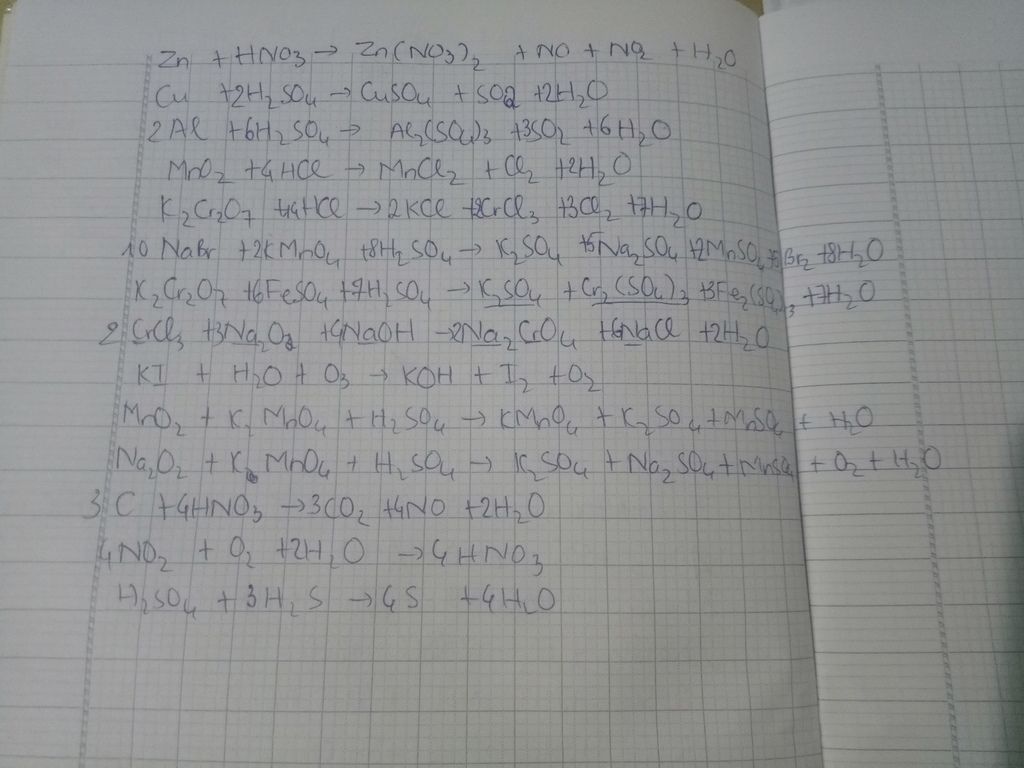 Zn + HNO₃ → Zn(NO₃)₂ + NO + NO₂ + H₂O
Cu + 2H₂SO₄ → CuSO₄ + SO₂ + 2H₂O
2Al + 6H₂SO₄ → Al₂(SO₄)₃ + 3SO₂ + 6H₂O
MnO₂ + 4HCl → MnCl₂ + Cl₂ + 2H₂O
K₂Cr₂O₇ + 14HCl → 2KCl + 2CrCl₃ + 3Cl₂ + 7H₂O
10 NaBr + 2KMnO₄ + 8H₂SO₄ → K₂SO₄ + 5Na₂SO₄ + 2MnSO₄ + 5Br₂ + 8H₂O
K₂Cr₂O₇ + 6FeSO₄ + 7H₂SO₄ → K₂SO₄ + Cr₂(SO₄)₃ + 3Fe₂(SO₄)₃ + 7H₂O
2 CrCl₃ + 3Na₂O₂ + 4NaOH → 2Na₂CrO₄ + 6NaCl + 2H₂O
KI + H₂O + O₃ → KOH + I₂ + O₂
MnO₂ + K₂MnO₄ + H₂SO₄ → KMnO₄ + K₂SO₄ + MnSO₄ + H₂O
Na₂O₂ + K MnO₄ + H₂SO₄ → K₂SO₄ + Na₂SO₄ + MnSO₄ + O₂ + H₂O
3 C + 4HNO₃ → 3CO₂ + 4NO + 2H₂O
4NO₂ + O₂ + 2H₂O → 4HNO₃
H₂SO₄ + 3H₂S → 4S + 4H₂O